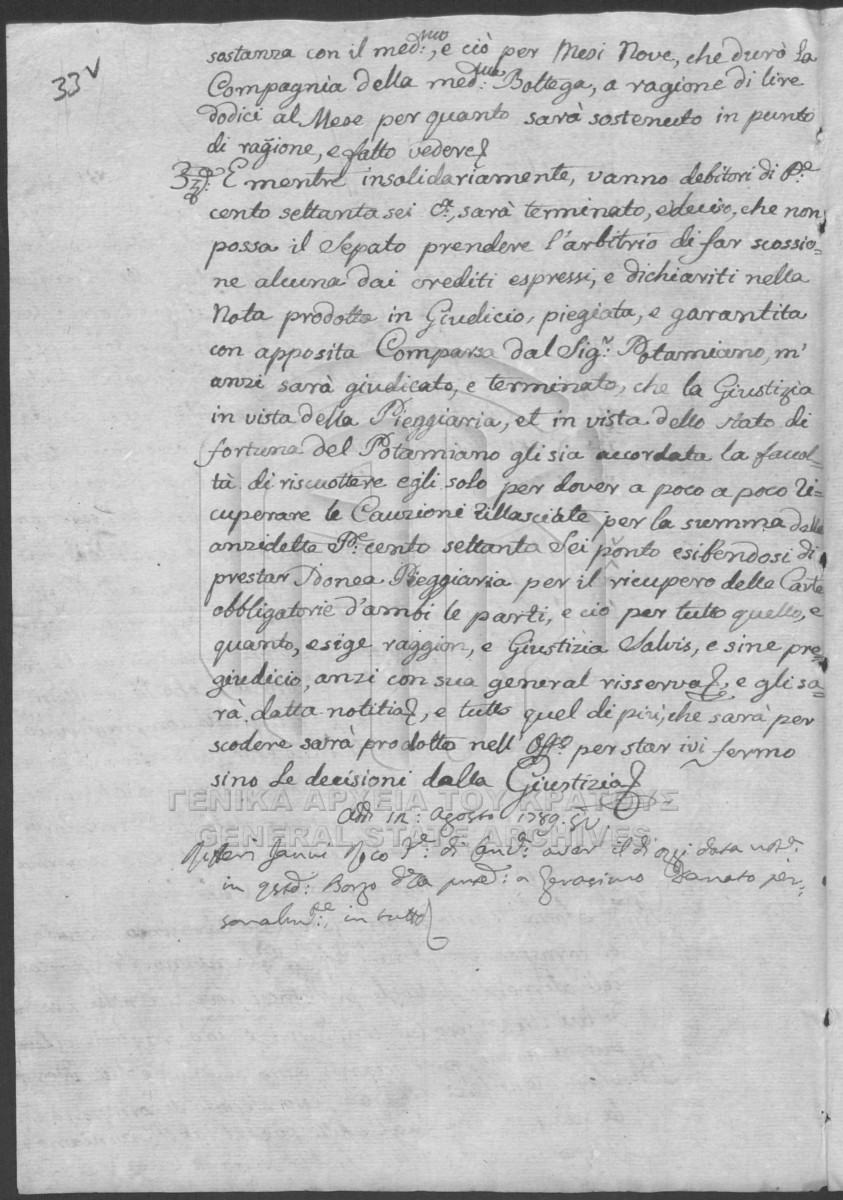 33v
sostanza con il med:mo, e ciò per Mesi Nove, che durò la
Compagnia della med:ma Bottega, a ragione di lire
dodici al Mese per quanto sarà sostenuto in punto
di ragione, e fatto vedere
E mentre insolidariamente, vanno debitori di P:e
cento settanta sei, sarà terminato, e deciso, che non
possa il Sepato prendere l'arbitrio di far scossio=
ne alcuna dai crediti espressi, e dichiariti nella
Nota prodotta in Giudicio, piegiata, e garantita
con apposita Comparsa dal Sig:r Potamiano, m'
anzi sarà giudicato, e terminato, che la Giustizia
in vista della Pieggiaria, et in vista dello stato di
fortuna del Potamiano gli sia accordata la facol=
tà di riscuottere egli solo per dover a poco a poco ri=
cuperare le Cauzioni rillasciate per la summa delle
anzidette P:e cento settanta Sei ponto esibendosi di
prestar Idonea Pieggiaria per il ricupero delle Carte
obbligatorie d'ambi le parti, e ciò per tutto quello, e
quanto, esige raggion, e Giustizia Salvis, e sine pre=
giudicio, anzi con sua general risserva, e gli sa=
rà datta notitia, e tutto quel di più, che sarà per
scodere sarà prodotto nell' Off:o per star ivi fermo
sino le decisioni dalla Giustizia
ΓΕΝΙΚΑ ΑΡΧΕΙΑ ΤΟΥ ΚΡΑΤΟΥΣ
Adì 12: Agosto 1789. SV
GENERAL STATE ARCHIVES
Rifferì Janni Roco aver il dì oggi data
in Borgo a Gerasimo per=
sonalm:te, in tutto